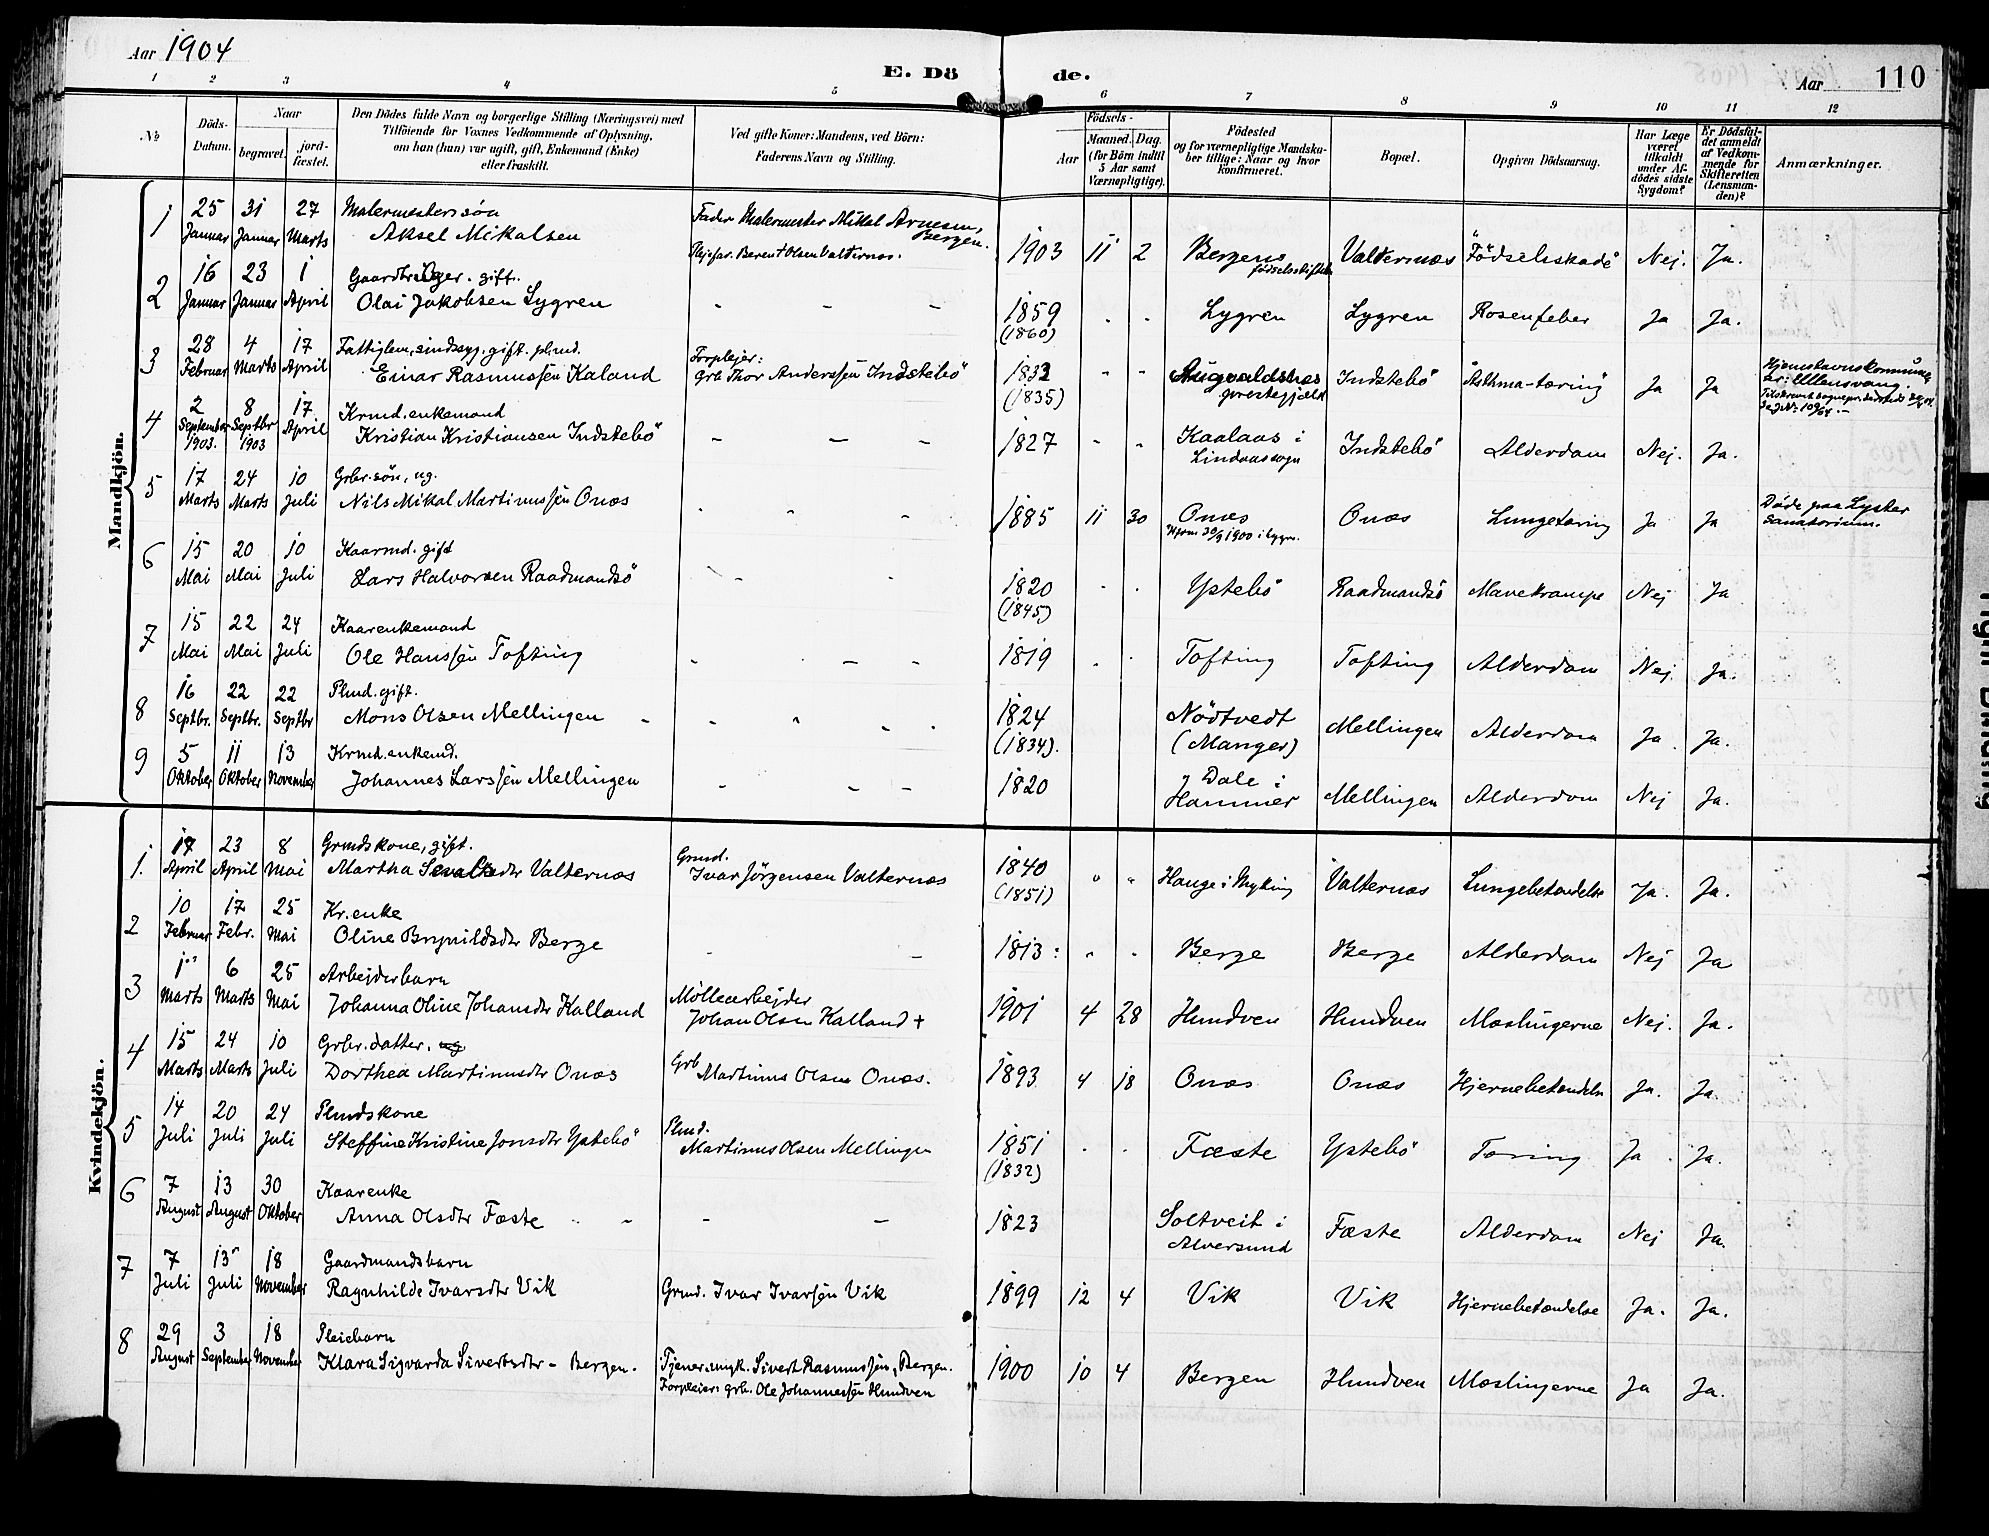 Aar 1904
E. Dö de.
Aar 110
1 2 3 4 5 6 7 8 9 10 11 12
№ Döds-Datum. Naar begravet. jord-fæstet. Den Dödes fulde Navn og borgerlige Stilling (Næringsvei) med Tilföiende for Voxnes Vedkommende af Oplysning, om han (hun) var ugift, gift, Enkemand (Enke) eller fraskilt. Ved gifte Koner: Mandens, ved Börn: Faderens Navn og Stilling. Födsels- Aar Maaned. Dag. (for Börn indtil 5 Aar samt Værnepligtige). Födested og for værnepligtige Mandska-ber tillige: Naar og hvor konfirmeret. Bopæl. Opgiven Dödsaarsag. Har Læge været tilkaldt under Af-dödes sidste Sygdom? Er Dödsfal-det anmeldt af Vedkom-mende for Skifteretten (Lensman-den)? Anmærkninger.
Mandkjön.
1 25 Januar 31 Januar 27 Marts Malermesterssön Aksel Mikalsen Fader Malermester Mikal Arnesen, Bergen. Plejefar. Berent Olsen Valternæs. 1903 11 2 Bergens födselsstiftelse Valternæs Födselsskade Nej. Ja.
2 16 Januar 23 Januar 1 April Gaardbruger. gift. Olai Jakobsen Lygren 1859 (1860) Lygren Lygren Rosenfeber Ja Ja.
3 28 Februar 4 Marts 17 April Fattiglem, sindssyg. gift. plmd. Einar Rasmussen Kaland Forplejer: Grb Thor Anderssen Indstebö 1832 (1835) Augvaldsnæs prestegjæld Indstebö Asthma-tæring Ja Ja Hjemstavnskommune er: Ullensvang.
4 2 September 1903. 8 Septbr 1903 17 April Krmd. enkemand Kristian Kristiansen Indstebö 1827 Kaalaas i Lindaas sogn Indstebö Alderdom Nej. Ja.
5 17 Marts 24 Marts 10 Juli Grbr. sön, ug. Nils Mikal Martinussen Onæs 1885 11 30 Onæs Onæs Lungetæring Ja Ja Döde paa Lyster sanatorium.
6 15 Mai 20 Mai 10 Juli Kaarmd. gift Lars Halvorsen Raadmandsö 1820 (1845) Ystebö Raadmandsö Mavekrampe Nej Ja
7 15 Mai 22 Mai 24 Juli Kaarenkemand Ole Hanssen Tofting 1819 Tofting Tofting Alderdom Nej Ja.
8 16 Septbr. 22 Septbr. 22 Septbr Plmd. gift. Mons Olsen Mellingen 1824 (1834). Nödtvedt (Manger) Mellingen Alderdom Ja. Ja.
9 5 Oktober 11 Oktober 13 November Krmd. enkemd. Johannes Larssen Mellingen 1820 Dale i Hammer Mellingen Alderdom Nej Ja.
Kvindekjön.
1. 17 April 23 April 8 Mai Grmdskone, gift. Martha Sevaltsdtr Valternæs Grmd. Ivar Jörgensen Valternæs 1840 (1851) Hauge i Myking Valternæs Lungebetændelse Ja. Ja.
2 10 Februar 17 Febr. 25 Mai Kr. enke Oline Brynildsdtr Berge 1813 Berge Berge Alderdom Nej Ja
3 1 Marts 6 Marts 25 Mai Arbejderbarn Johanna Oline Johansdtr Kalland Möllearbejder Johan Olsen Kalland + 1901 4 28 Hundven Hundven Mæslingerne Nej. Ja.
4 15 Marts 24 Marts 10 Juli Grbr. datter. ug Dorthea Martinusdtr Onæs Grb Martinus Olsen Onæs. 1893 4 18 Onæs Onæs Hjernebetændelse Ja. Ja.
5 14 Juli 20 Juli 24 Juli Plmdskone Steffine Kristine Jonsdtr Ystebö Plmd. Martinus Olsen Mellingen 1851 (1832) Fæste Ystebö Tæring Ja. Ja.
6 7 August 13 August 30 Oktober Kaarenke Anna Olsdtr Fæste 1823 Soltveit i Alversund Fæste Alderdom Nej Ja.
7 7 Juli 13 Juli 18 November Gaardmandsbarn Ragnhilde Ivarsdtr Vik Grmd. Ivar Ivarsen Vik 1899 12 4 Vik Vik Hjernebetændelse Ja. Ja.
8 29 August 3 September 18 November Pleiebarn Klara Sigvarda Sivertsdtr - Bergen. Tjener, ungk. Sivert Rasmussen, Bergen. Forpleier: grb. Ole Johannessen Hundven 1900 10 4 Bergen Hundven Mæslingerne Ja Ja.